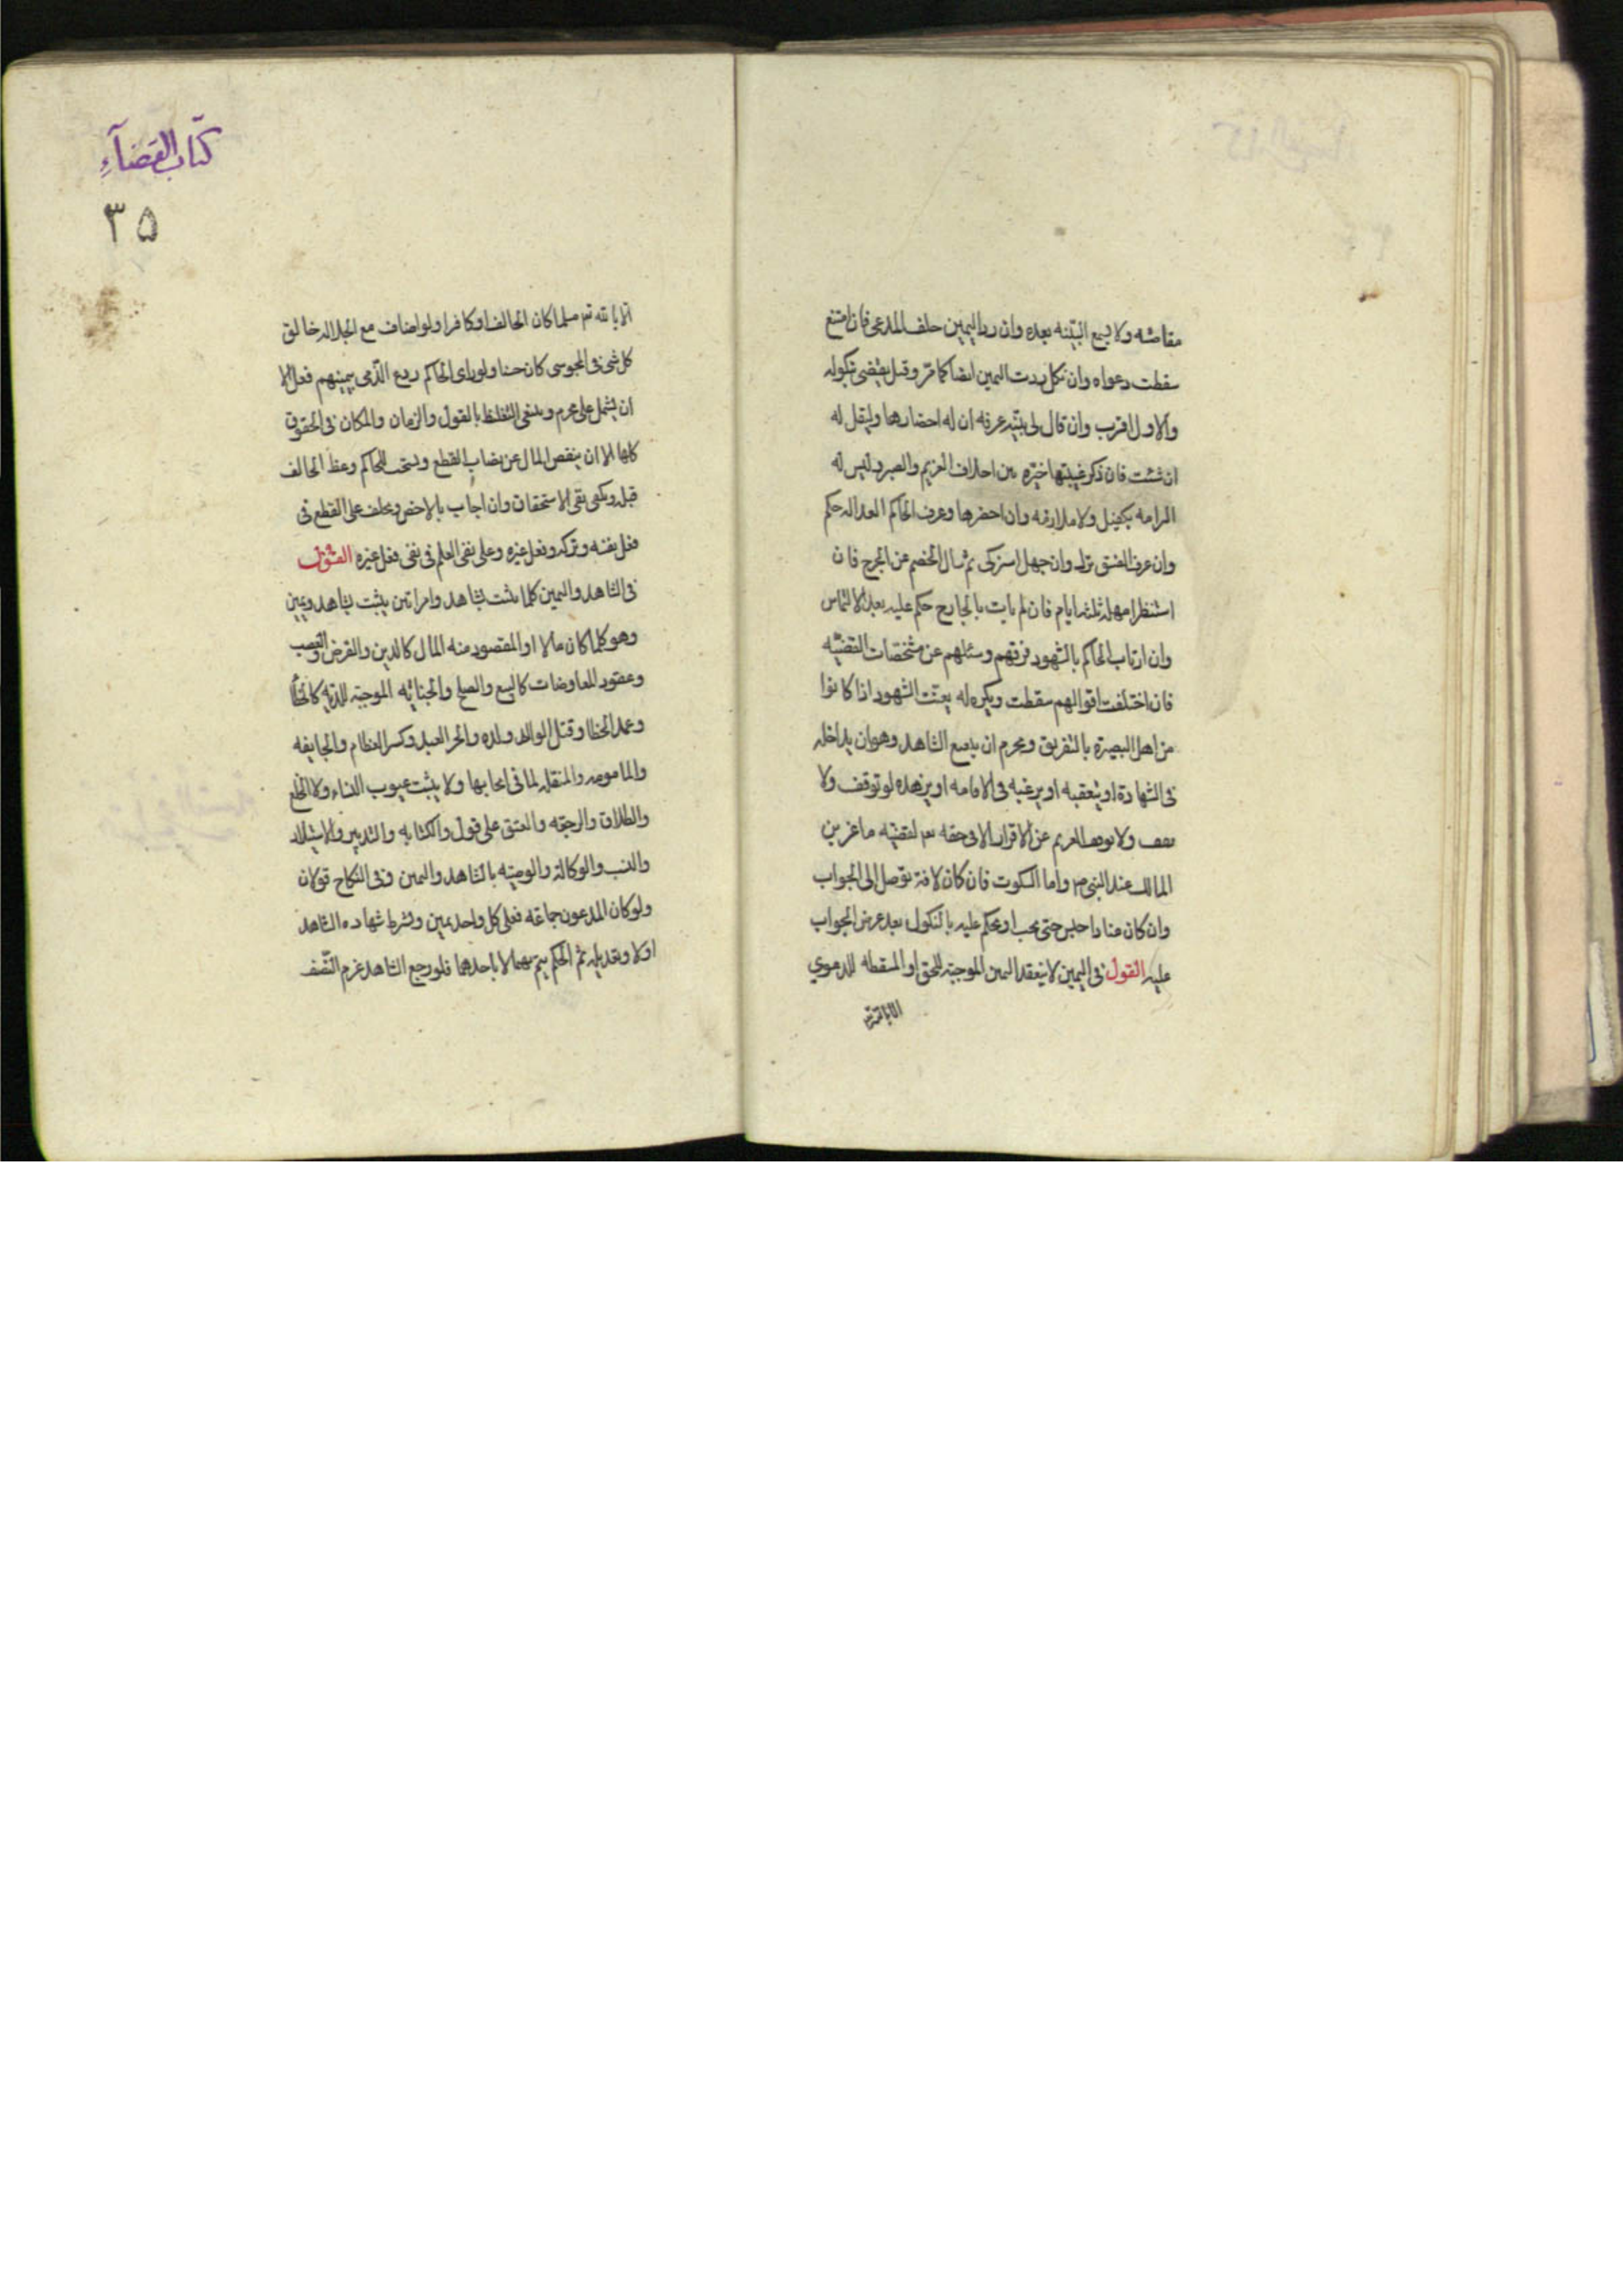 مقاصته ولا یسمع البینه بعده وان رد الیمین حلف المدعی فان امتنع
سقطت دعواه وان نکل ردت الیمین ایضا کما مر وقیل یقضی بنکوله
والاول اقرب وان قال لی بینه عرفه ان له احضارها ولیقل له
ان شئت فان ذکر غیبتها خیره بین احلاف الغریم والصبر ولیس له
الزامه بکفیل ولا ملازمه وان احضرها وعرف الحاکم العداله حکم
وان عرف الفسق ترک وان جهل استزکی ثم سال الخصم عن الجرح فان
استنظر امهله ثلثه ایام فان لم یات بالجارح حکم علیه بعد الالتماس
وان ارتاب الحاکم بالشهود فرقهم وسئلهم عن مشخصات القضیه
فان اختلفت اقوالهم سقطت ویکره له یعنت الشهود اذا کانوا
من اهل البصیرة بالتفریق ویحرم ان یتعتع الشاهد وهو ان یداخله
فی الشهادة او یتعقبه او یرغبه فی الاقامه او یزهده لو توقف ولا
یقف ولا یوقف الغریم عن الاقرار الا فی حقه تع لقضیه ماعز بن
المالک عند النبی ص واما السکوت فان کان لافة توصل الی الجواب
وان کان عنادا حبس حتی یجب او یحکم علیه بالنکول بعد عرض الجواب
علیه القول فی الیمین لا ینعقد الیمین الموجبة للحق او المسقطه للدعوی
الا بالله تع
کتاب القضآء
۳۵
الا بالله تع مسلما کان الحالف او کافرا ولو اضاف مع الجلاله خالق
کل شیء فی المجوسی کان حسنا ولو رای الحاکم ردع الذمی بیمینهم فعل الا
ان یشمل علی محرم وینبغی التغلیظ بالقول والزمان والمکان فی الحقوق
کلها الا ان ینقص المال عن نصاب القطع ویستحب للحاکم وعظ الحالف
قبله ویکفی نفی الاستحقاق وان اجاب بالاخص ویحلف علی القطع فی
فعل نفسه وترکه وفعل غیره وعلی نفی العلم فی نفی فعل غیره القول
فی الشاهد والیمین کلما یثبت بشاهد وامراتین یثبت بشاهد ویمین
وهو کلما کان مالا او المقصود منه المال کالدین والقرض والغصب
وعقود المعاوضات کالبیع والصلح والجنایه الموجبة للدیه کالخطأ
وعمد الخطا وقتل الوالد ولده والحر العبد وکسر العظام والجایفه
والمامومه والمنقله لما فی ایجابها ولا یثبت عیوب النساء ولا الخلع
والطلاق والرجعه والعتق علی قول والکتابه والتدبیر والاستیلاد
والنسب والوکالة والوصیه بالشاهد والیمین وفی النکاح قولان
ولو کان المدعون جماعه فعلی کل واحد یمین ویشرط شهاده الشاهد
اولا وتعدیله ثم الحکم یتم بهما لا باحدهما فلو رجع الشاهد غرم النّصف